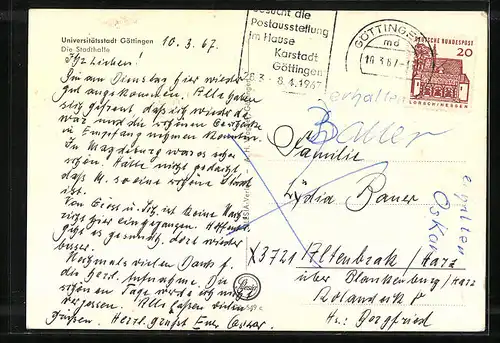 Universitätsstadt Göttingen
Die Stadthalle
10. 3. 67.
Ihr Lieben!
Bin am Dienstag hier wieder
gut angekommen. Alle haben
sich gefreut, daß ich wieder da
war und die schönen
in Empfang nehmen konnten.
In Magdeburg war es sehr
schön. Hätte nicht gedacht,
daß M. so eine schöne Stadt
ist.
Von u. ist keine Nach-
richt hier eingegangen. Hoffentl.
geht es gesundh. dort wieder
besser.
Nochmals vielen Dank f.
die Aufnahme. Die
schönen Tage werde ich nicht
vergessen. Alle lassen vielen
grüßen. Herzl. grüßt Euer Oskar.
Besucht die
Postausstellung
im Hause
Karstadt
Göttingen
8.4.1967
GÖTTINGEN
md
10.3.67
DEUTSCHE BUNDESPOST
20
LORSCH/HESSEN
erhalten
Familie
Lydia Bauer
X3721 Altenbrak/Harz
über Blankenburg/Harz
Rolandseck
Hs.: Bergfried
erhalten
Oskar